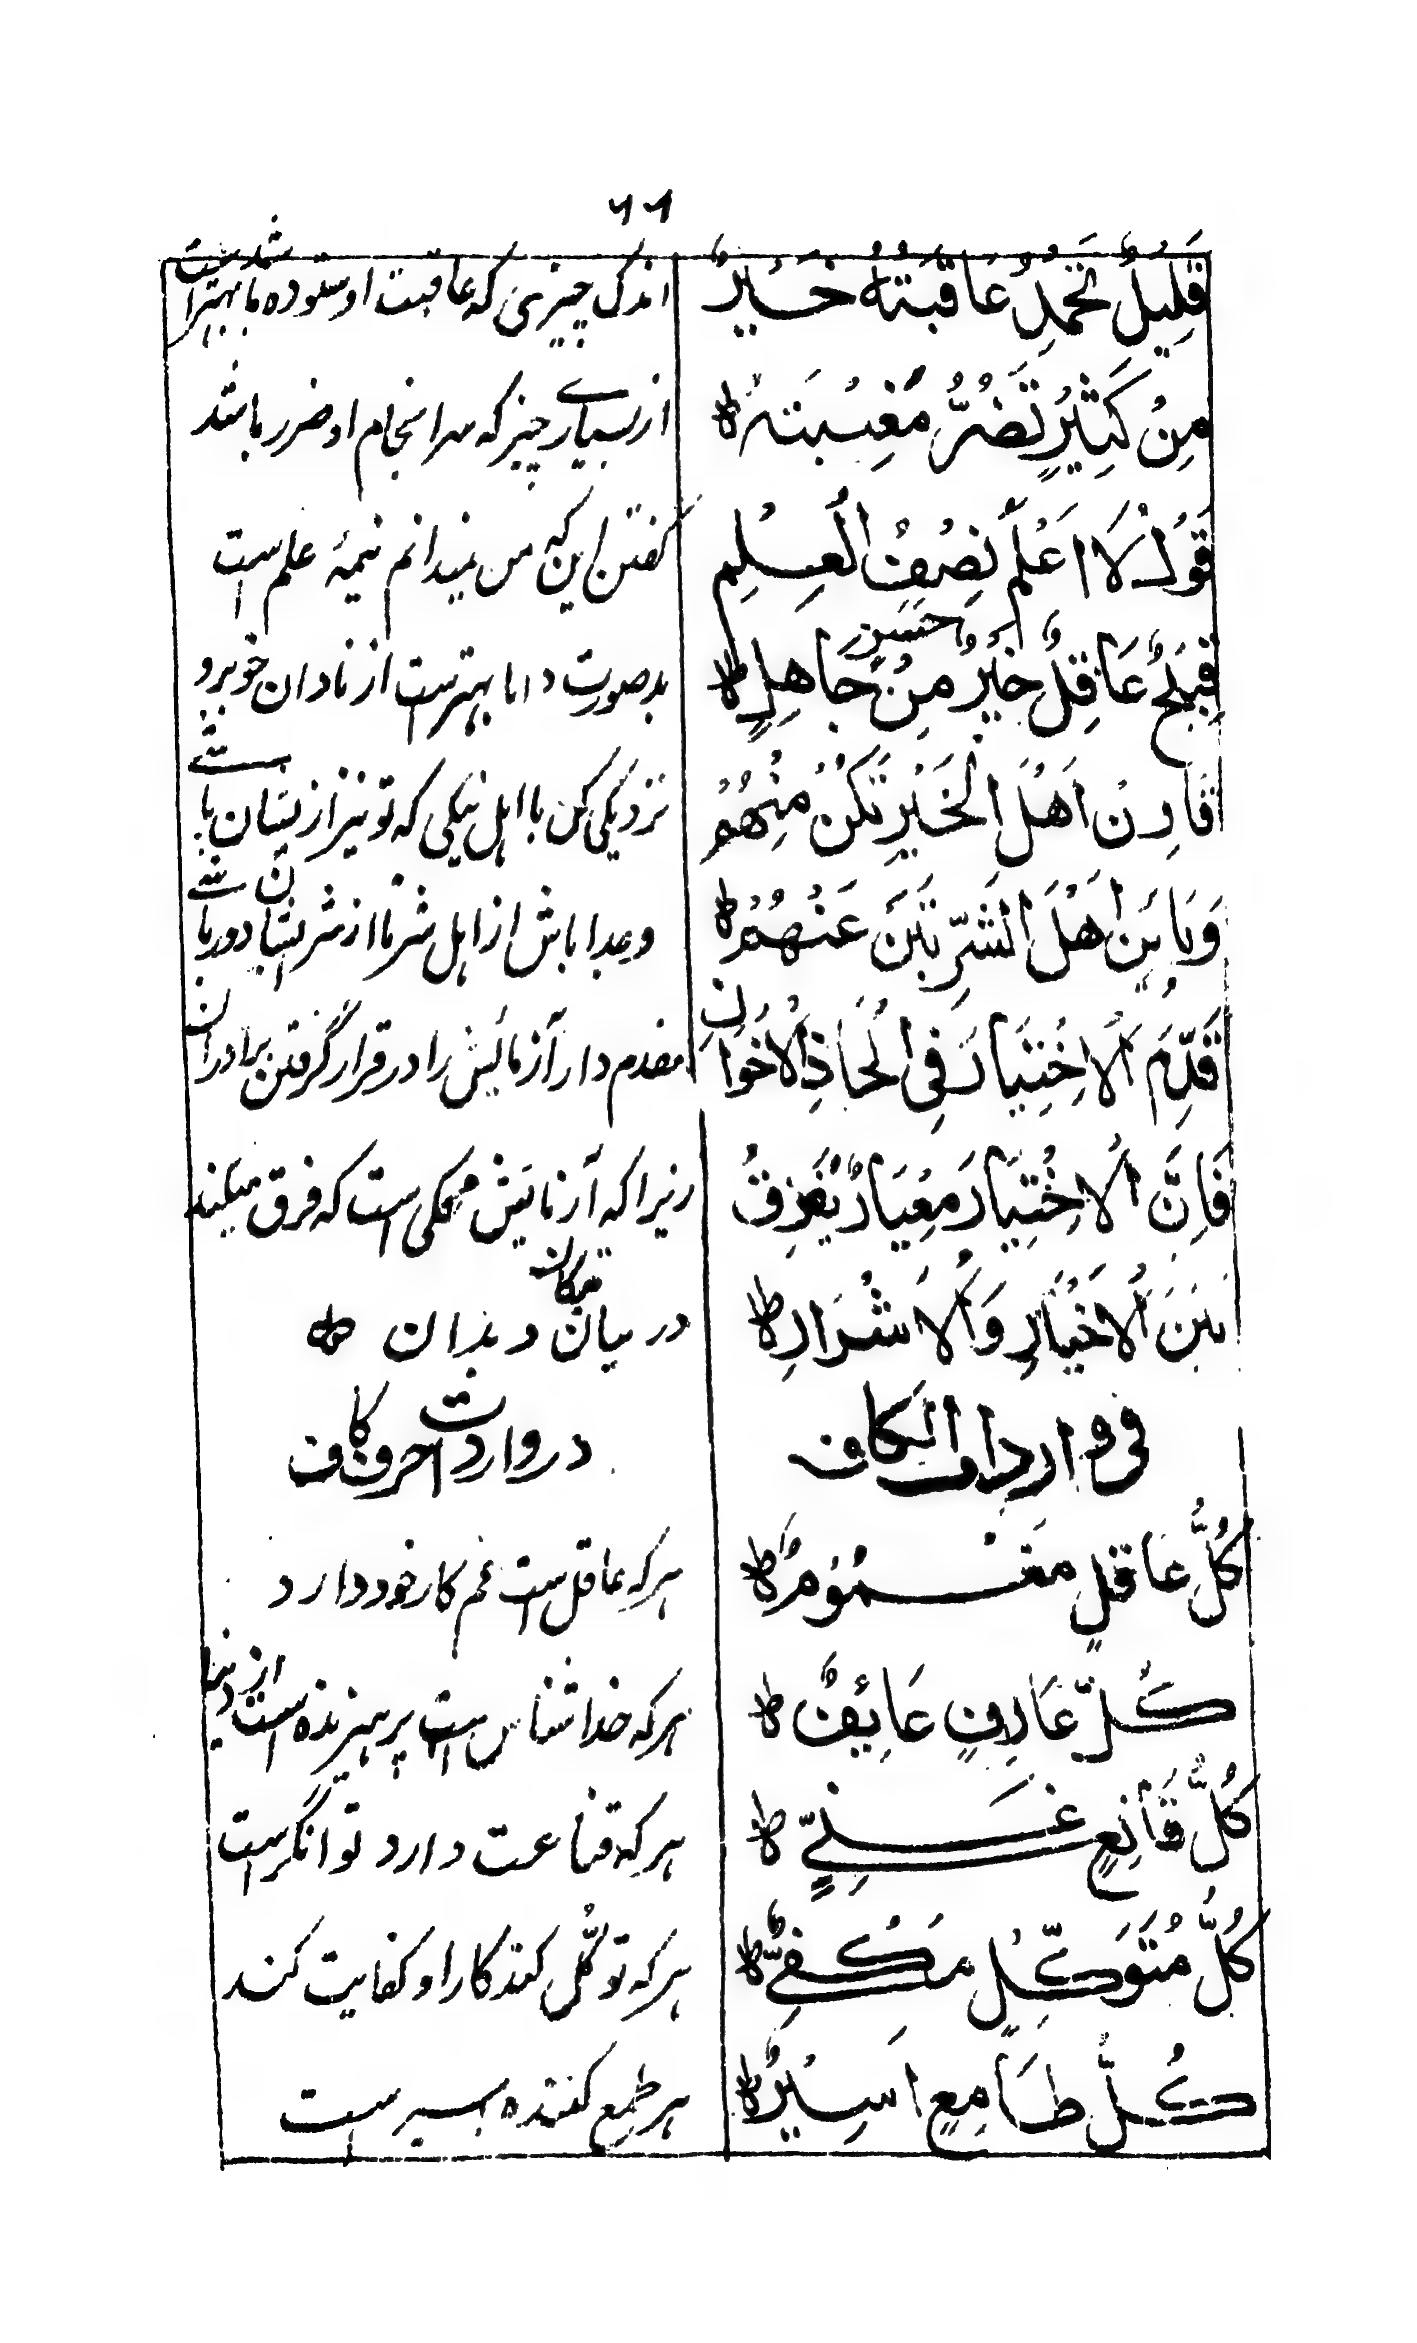 ۶۶
قَلِيلٌ تَحْمَدُ عَاقِبَتُهُ خَيْرٌ
اندک چیزی که عاقبت او ستوده باشد بهتر است
مِنْ كَثِيرٍ تَضُرُّ مَغِبَّتُهُ ط
از بسیارے چیز که سرانجام او ضرر باشد
قَوْلُ لَا اَعْلَمُ نِصْفُ الْعِلْمِ
گفتن این که من نمیدانم نیمهٔ علم است
قَبِيحٌ عَاقِلٌ خَيْرٌ مِنْ حَسَنٍ جَاهِلٍ ط
بد صورت دانا بهترست از نادان خوبرو
قَارِنْ اَهْلَ الْخَيْرِ تَكُنْ مِنْهُمْ
نزدیکی کن با اهل نیکی که تو نیز از یشان باشے
وَبَايِنْ اَهْلَ الشَّرِّ تَبِنْ عَنْهُمْ ط
و جدا باش از اهل شر تا از شر یشان دور باشے
قَدِّمِ الْاِخْتِيَارَ فِى الْخَاذِ الْاَخْوَانِ
مقدم دار آزمایش را در قرار گرفتن برادران
فَاِنَّ الْاِخْتِيَارَ مِعْيَارٌ يُفَرِّقُ
زیرا که آزمایش محکی است که فرق میکند
بَيْنَ الْاَخْيَارِ وَالْاَشْرَارِ ط
در میان نیکان و بدان ط
فى واردات الكاف
در واردات حرف کاف
كُلُّ عَاقِلٍ مَغْمُوْمٌ ط
هرکه عاقل است غم کار خود دارد
كُلُّ عَارِفٍ عَايِفٌ ط
هرکه خدا شناس است پرهیزنده است از دنیا
كُلُّ قَانِعٍ غَنِيٌّ ط
هرکه قناعت دارد توانگر است
كُلُّ مُتَوَكِّلٍ مَكْفِيٌّ ط
هرکه توکّل کند کار او کفایت کند
كُلُّ طَامِعٍ اَسِيْرٌ ط
هر طمع کننده اسیر است